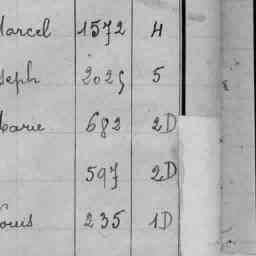 Marcel 1572 H
Joseph 2025 5
Marie 682 2D
597 2D
Louis 235 1D